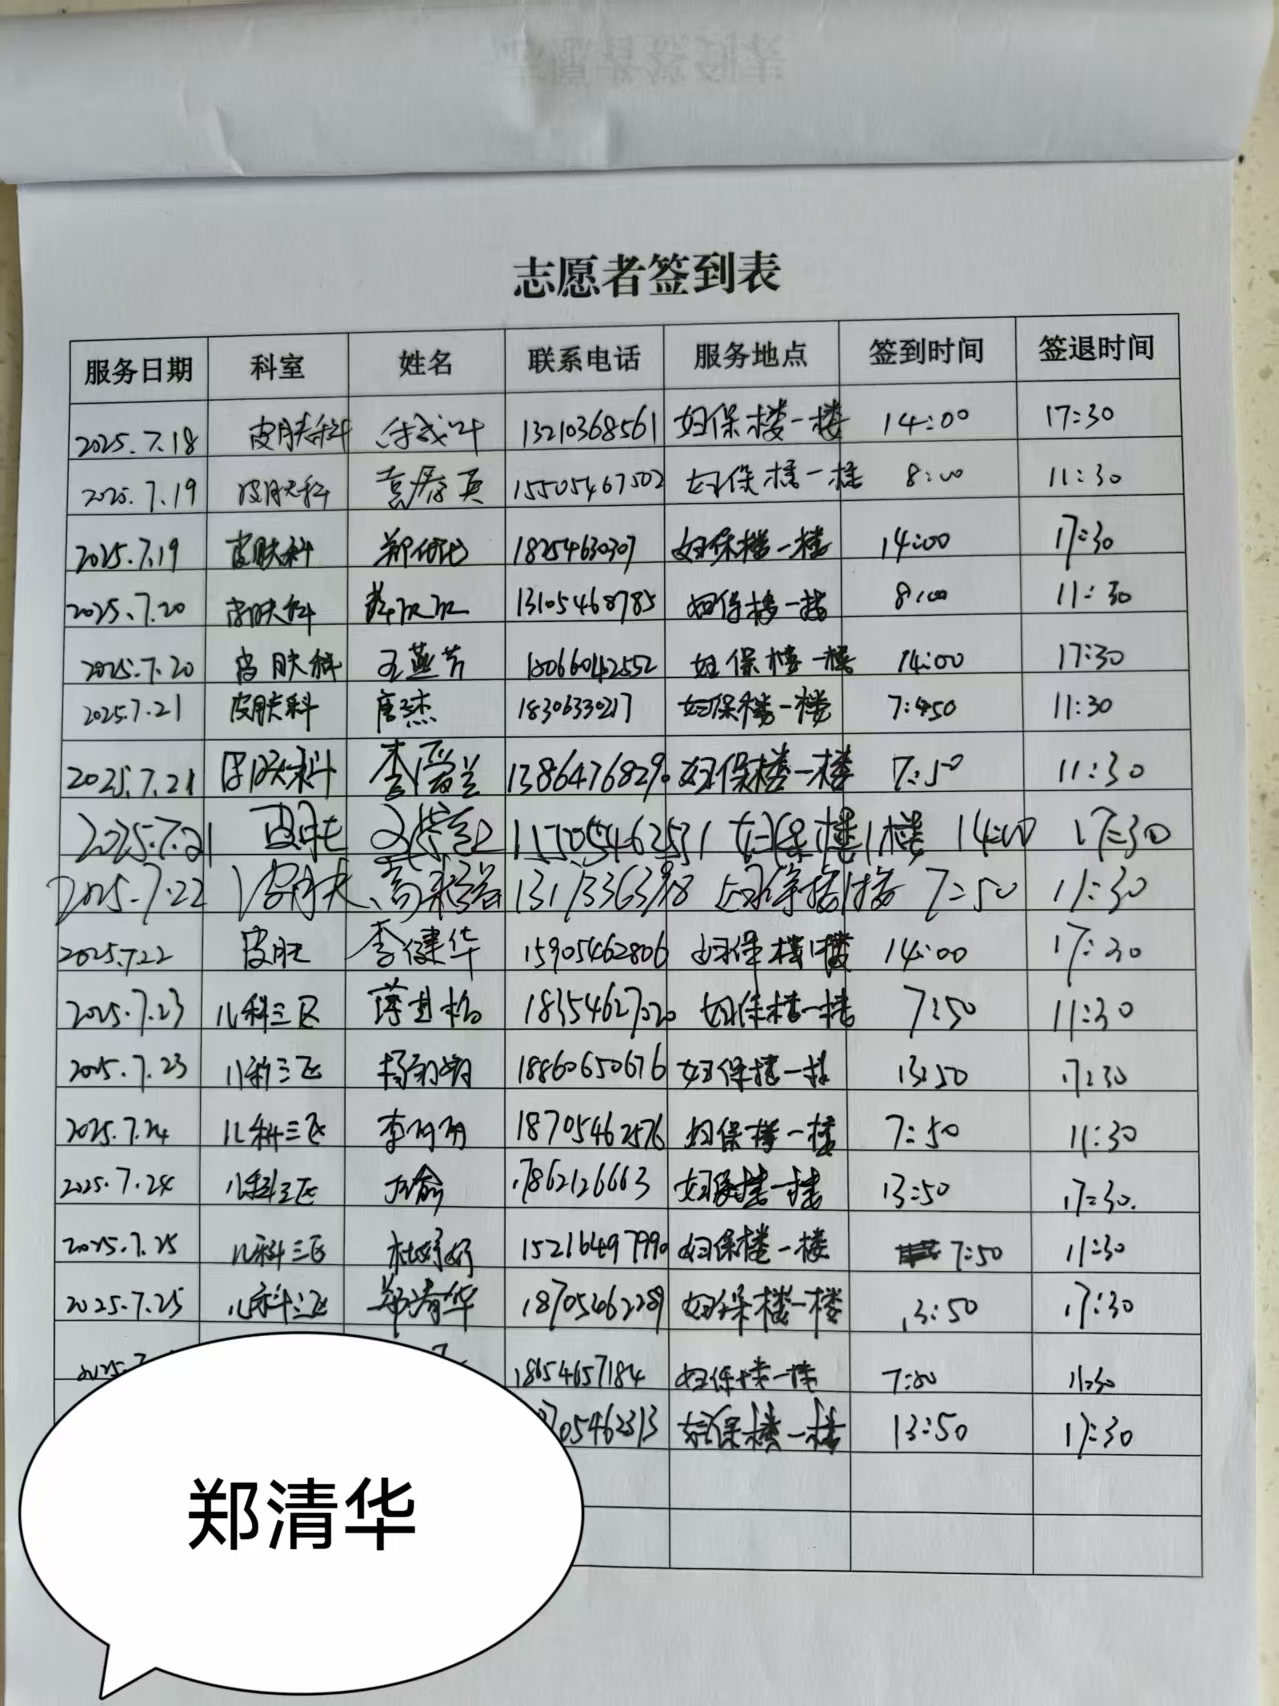 志愿者签到表
服务日期 科室 姓名 联系电话 服务地点 签到时间 签退时间
2025.7.18 皮肤科 13210368561 妇保楼一楼 14:00 17:30
2025.7.19 皮肤科 15505467502 妇保楼一楼 8:00 11:30
2025.7.19 皮肤科 18254630307 妇保楼一楼 14:00 17:30
2025.7.20 皮肤科 13105468785 妇保楼一楼 8:00 11:30
2025.7.20 皮肤科 王燕芳 18066042552 妇保楼一楼 14:00 17:30
2025.7.21 皮肤科 唐杰 18306330217 妇保楼一楼 11:30
2025.7.21 皮肤科 13864768290 妇保楼一楼 7:50 11:30
2025.7.21 皮肤 妇保楼1楼 14:00 17:30
2025.7.22 皮肤 7:50 11:30
2025.7.22 皮肤 李健华 15905462806 妇保楼1楼 14:00 17:30
2025.7.23 儿科三区 妇保楼一楼 7:50 11:30
2025.7.23 儿科三区 18860650676 妇保楼一楼 13:50 17:30
2025.7.24 儿科三区 18705462576 妇保楼一楼 7:50 11:30
2025.7.24 儿科三区 17862126663 妇保楼一楼 13:50 17:30.
2025.7.25 儿科三区 15216497990 妇保楼一楼 7:50 11:30
2025.7.25 儿科三区 郑清华 18705462289 妇保楼一楼 13:50 17:30
18654657184 妇保楼一楼 11:30
705462313 妇保楼一楼 13:50 17:30
郑清华